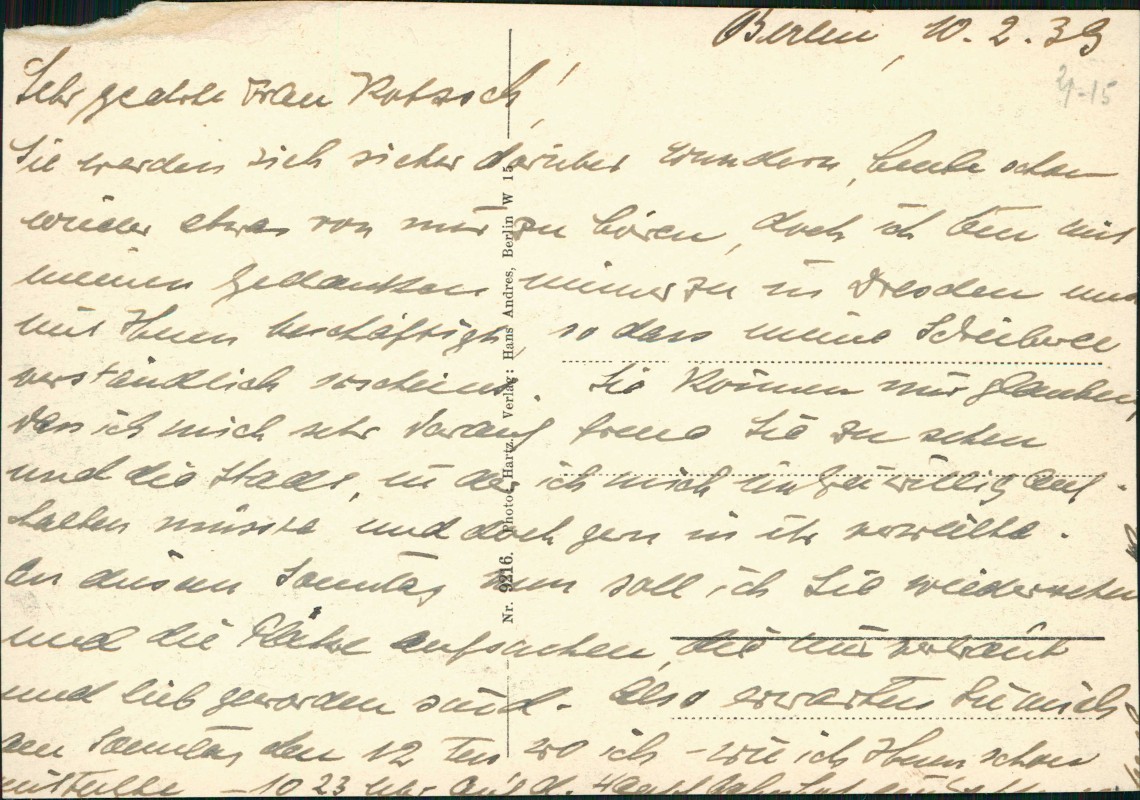 Berlin, 10.2.39
24-15
Sehr geehrte Frau Kotzsch!
Sie werden sich sicher darüber wundern, heute schon
wieder etwas von mir zu hören, doch ich bin mit
meinen Gedanken immerzu in Dresden und
mit Ihnen beschäftigt, so dass meine Schreiberei
verständlich erscheint. Sie können mir glauben,
dass ich mich sehr darauf freue Sie zu sehen
und die Stadt, in der ich mich unfreiwillig auf-
halten müsste und doch gern in ihr verweilte.
An diesem Sonntag nun soll ich Sie wiedersehen
und die Plätze aufsuchen, die mir vertraut
und lieb geworden sind. Also erwarten Sie mich
am Sonntag den 12 ten wo ich – wie ich Ihnen schon
mitteilte – 10 23 Uhr auf d. Hauptbahnhof
Nr. 9216. Photo: Hartz. Verlag: Hans Andres, Berlin W 15